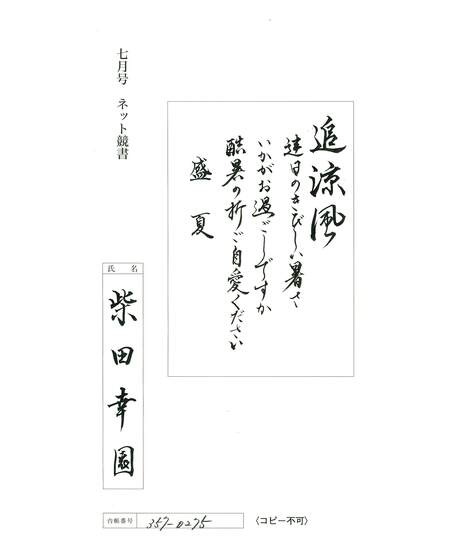 七月号 ネット競書
追涼風
連日のきびしい暑さ
いかがお過ごしですか
酷暑の折ご自愛ください
盛夏
氏名
柴田幸園
台帳番号 357-0275
〈コピー不可〉